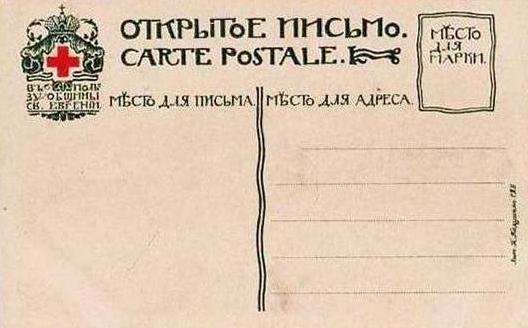 ОТКРЫТОЕ ПИСЬМО.
CARTE POSTALE.
МѢСТО
ДЛЯ
МАРКИ.
ВЪ ПОЛЬ
ЗУ ОБЩИНЫ
СВ. ЕВГЕНІИ
МѢСТО ДЛЯ ПИСЬМА.
МѢСТО ДЛЯ АДРЕСА.